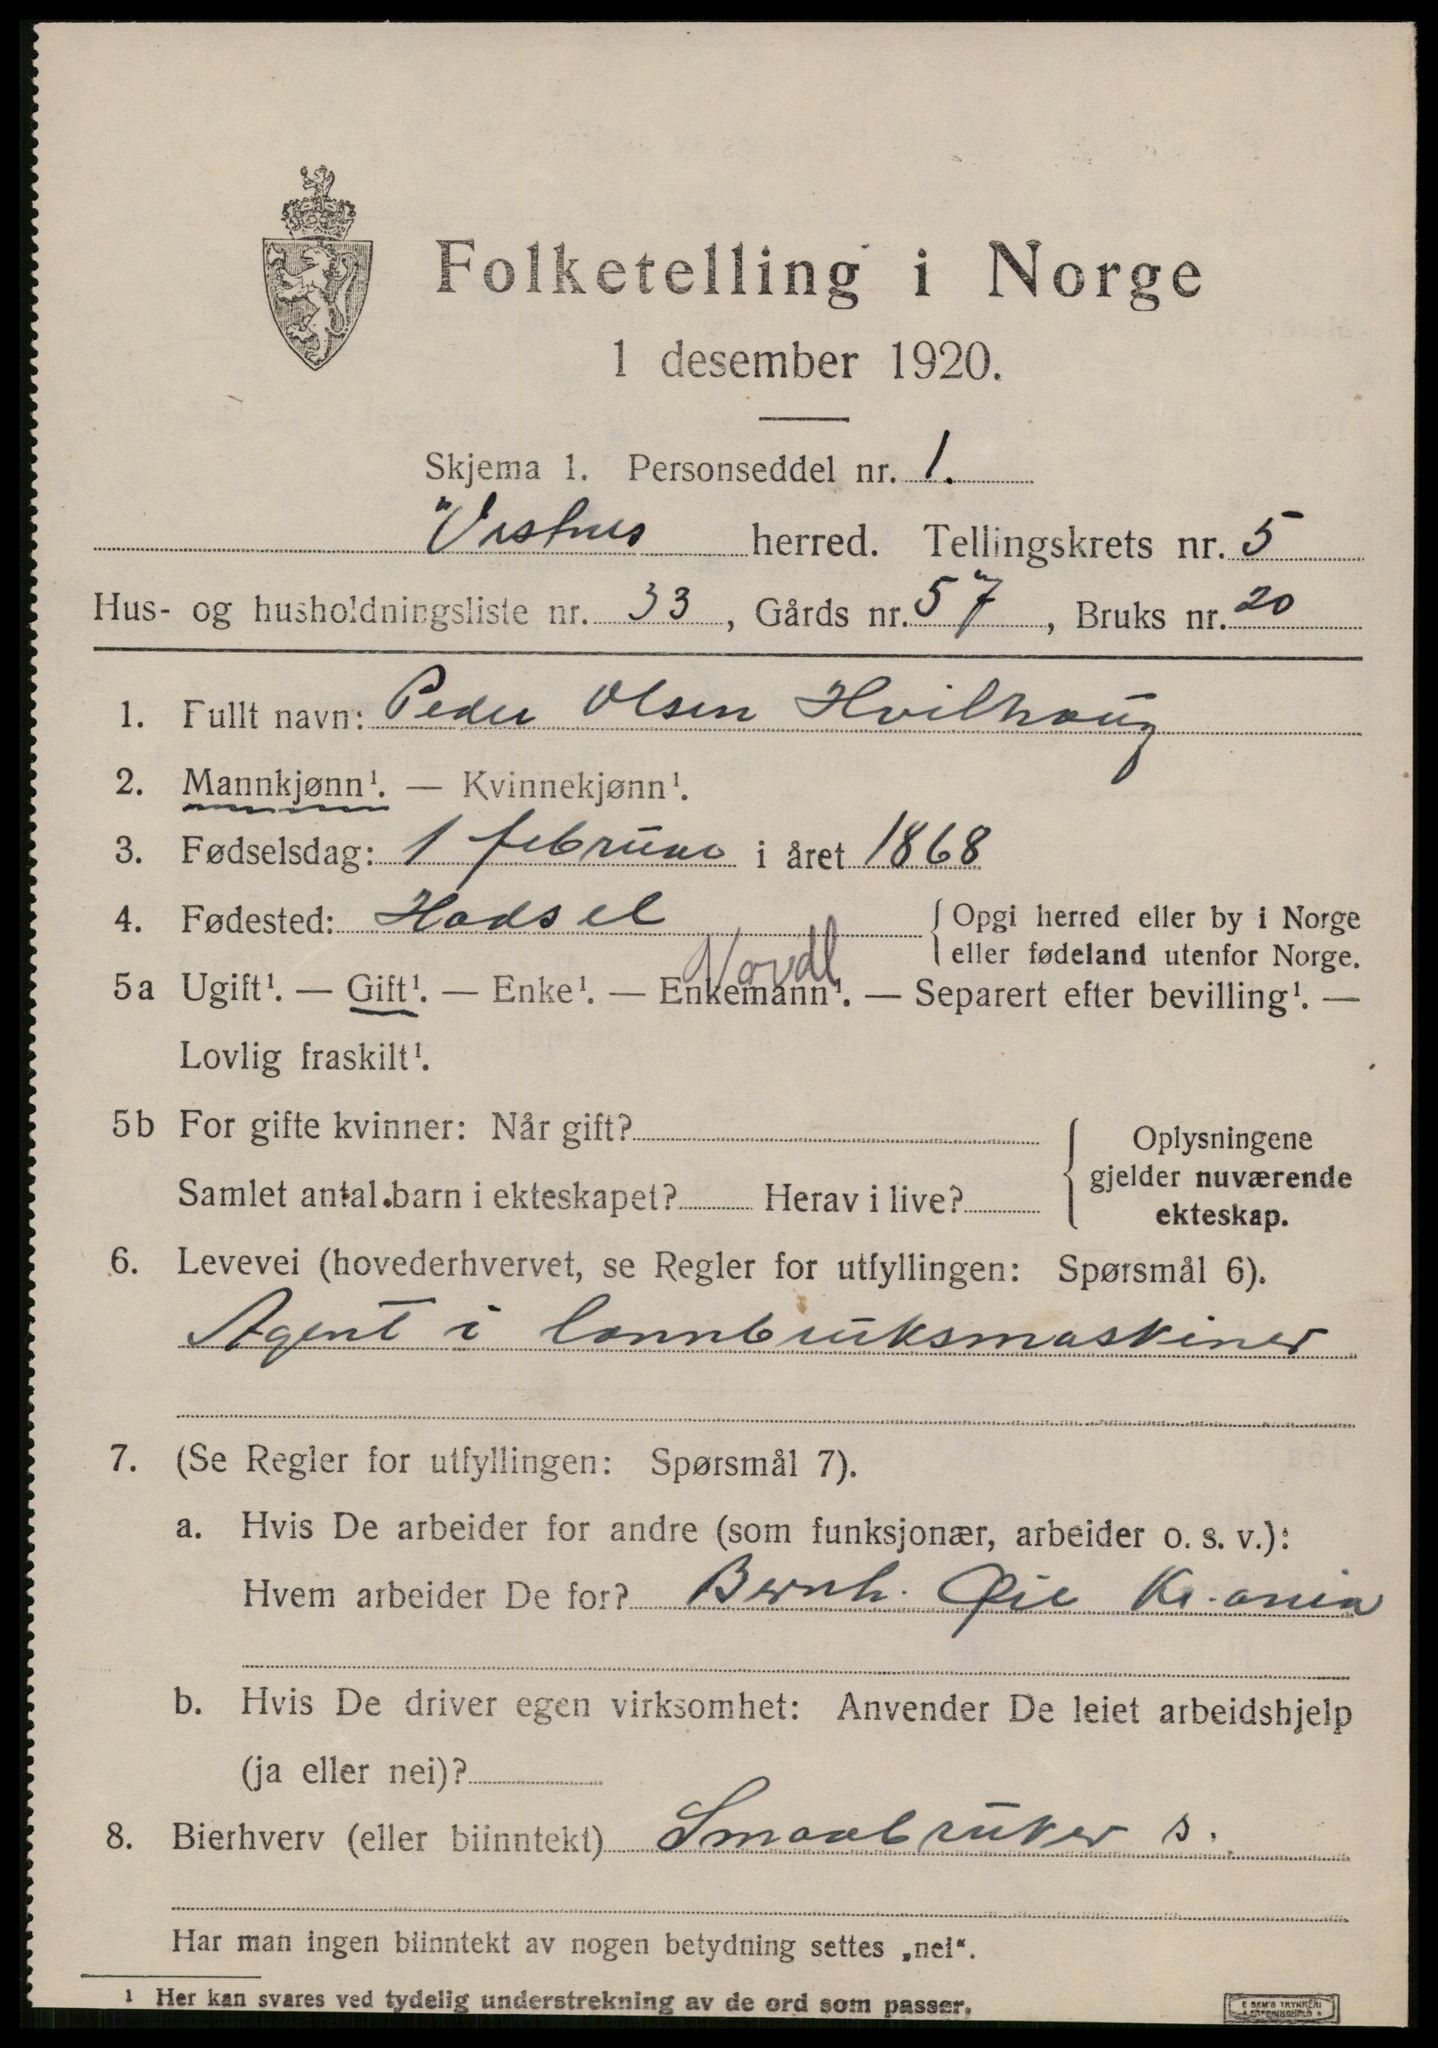 Folketelling i Norge
1 desember 1920.
Skjema 1. Personseddel nr. 1.
Vestnes herred. Tellingskrets nr. 5
Hus- og husholdningsliste nr. 33, Gårds nr. 57, Bruks nr. 20
1. Fullt navn: Peder Olsen Hvilhaug
2. Mannkjønn¹. — Kvinnekjønn¹.
3. Fødselsdag: 1 februar i året 1868
4. Fødested: Hadsel { Opgi herred eller by i Norge
eller fødeland utenfor Norge.
Nordl
5a Ugift¹. — Gift¹. — Enke¹. — Enkemann¹. — Separert efter bevilling¹. —
Lovlig fraskilt¹.
5b For gifte kvinner: Når gift?
Samlet antal barn i ekteskapet? Herav i live?
{ Oplysningene
gjelder nuværende
ekteskap.
6. Levevei (hovederhvervet, se Regler for utfyllingen: Spørsmål 6).
Agent i lannbruksmaskiner
7. (Se Regler for utfyllingen: Spørsmål 7).
a. Hvis De arbeider for andre (som funksjonær, arbeider o. s. v.):
Hvem arbeider De for? Bernh. Øie Kr.ania
b. Hvis De driver egen virksomhet: Anvender De leiet arbeidshjelp
(ja eller nei)?
8. Bierhverv (eller biinntekt) Smaabruker s.
Har man ingen biinntekt av nogen betydning settes „nei“.
¹ Her kan svares ved tydelig understrekning av de ord som passer.
E SEM'S TRYKKERI